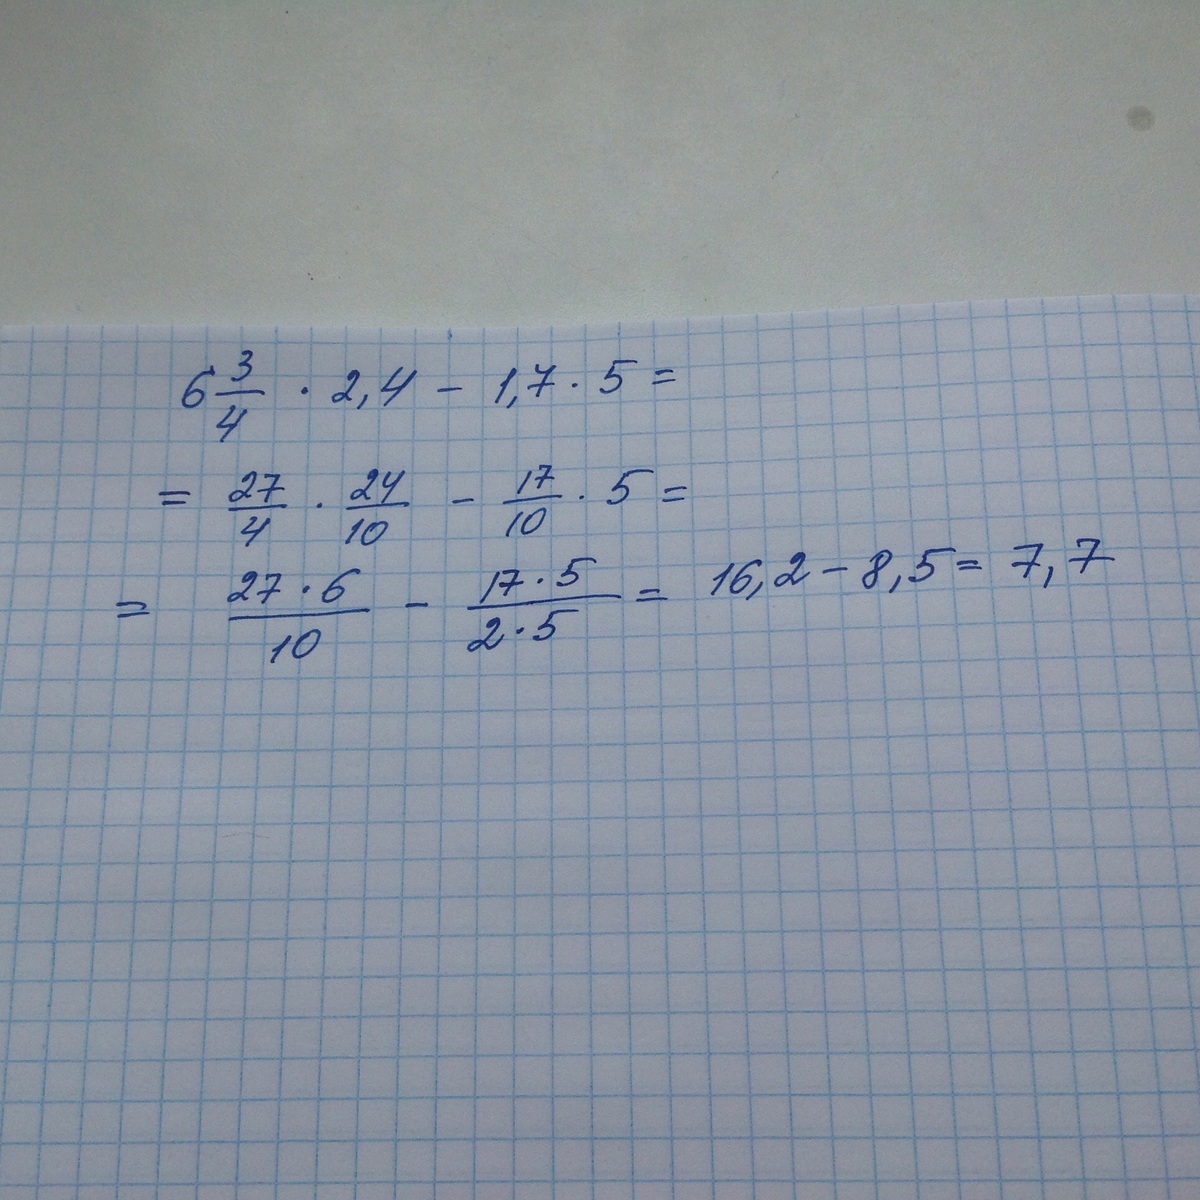 6 3/4 · 2,4 - 1,7 · 5 =
= 27/4 · 24/10 - 17/10 · 5 =
= 27·6/10 - 17·5/2·5 = 16,2 - 8,5 = 7,7